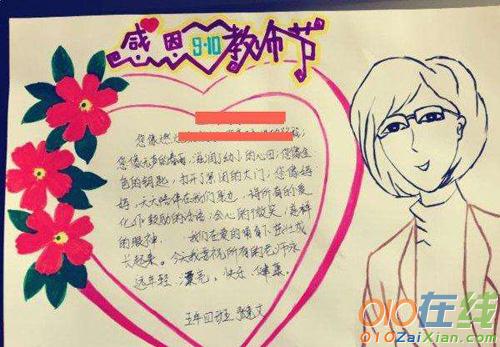 感恩9·10教师节
您像
您像无声的春雨,滋润了幼小的心田;您像金
色的钥匙,打开了紧闭的大门;您像妈
妈,天天陪伴在我们身边,将所有的爱
化作鼓励的话语,会心的微笑,慈祥
的眼神。我们在爱的
长起来。今天我要祝所有的老师永
远年轻、漂亮、快乐、健康。
五年四班
010在线
010ZaiXian.com